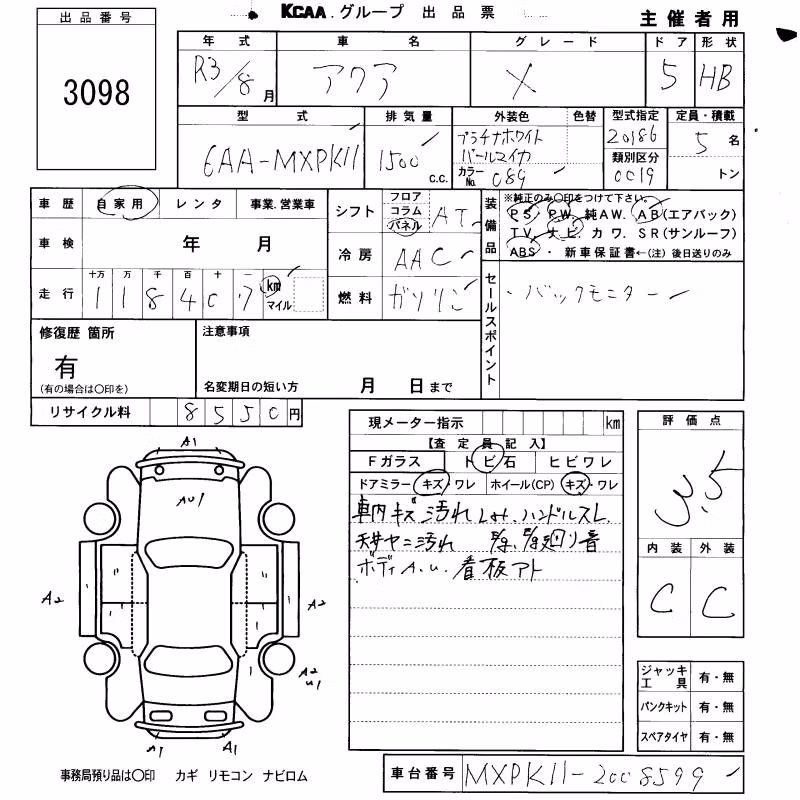 KCAA. グループ 出品票
主催者用
出品番号
3098
年式 車名 グレード ドア 形状
R3/8月 アクア X 5 HB
型式 排気量 外装色 色替 型式指定 定員・積載
6AA-MXPK11 1500 c.c. プラチナホワイト パールマイカ 20186 5名
類別区分
カラーNo. 089 0019 トン
車歴 自家用 レンタ 事業.営業車
シフト フロア コラム パネル AT
装備品 ※純正のみ○印をつけて下さい。
PS. PW. 純AW. AB(エアバック)
TV. ナビ. カワ. SR(サンルーフ)
ABS・新車保証書←(注)後日送りのみ
車検 年 月
冷房 AAC
走行 十万 万 千 百 十 一
1 1 8 4 0 7 km マイル
燃料 ガソリン
セールスポイント
・バックモニター
修復歴 箇所
有
(有の場合は○印を)
注意事項
名変期日の短い方 月 日まで
リサイクル料 8550円
現メーター指示 km
【査定員記入】
Fガラス トビ石 ヒビワレ
ドアミラー キズ・ワレ ホイール(CP) キズ・ワレ
車内キズ汚れ Lat. ハンドルスレ
天井ヤニ汚れ 廻り音
ボディA.U. 看板アト
評価点
3.5
内装 外装
C C
A1
AU1
A2 A2
A2
U1
A1 A1
ジャッキ工具 有・無
パンクキット 有・無
スペアタイヤ 有・無
事務局預り品は○印 カギ リモコン ナビロム
車台番号 MXPK11-2008599